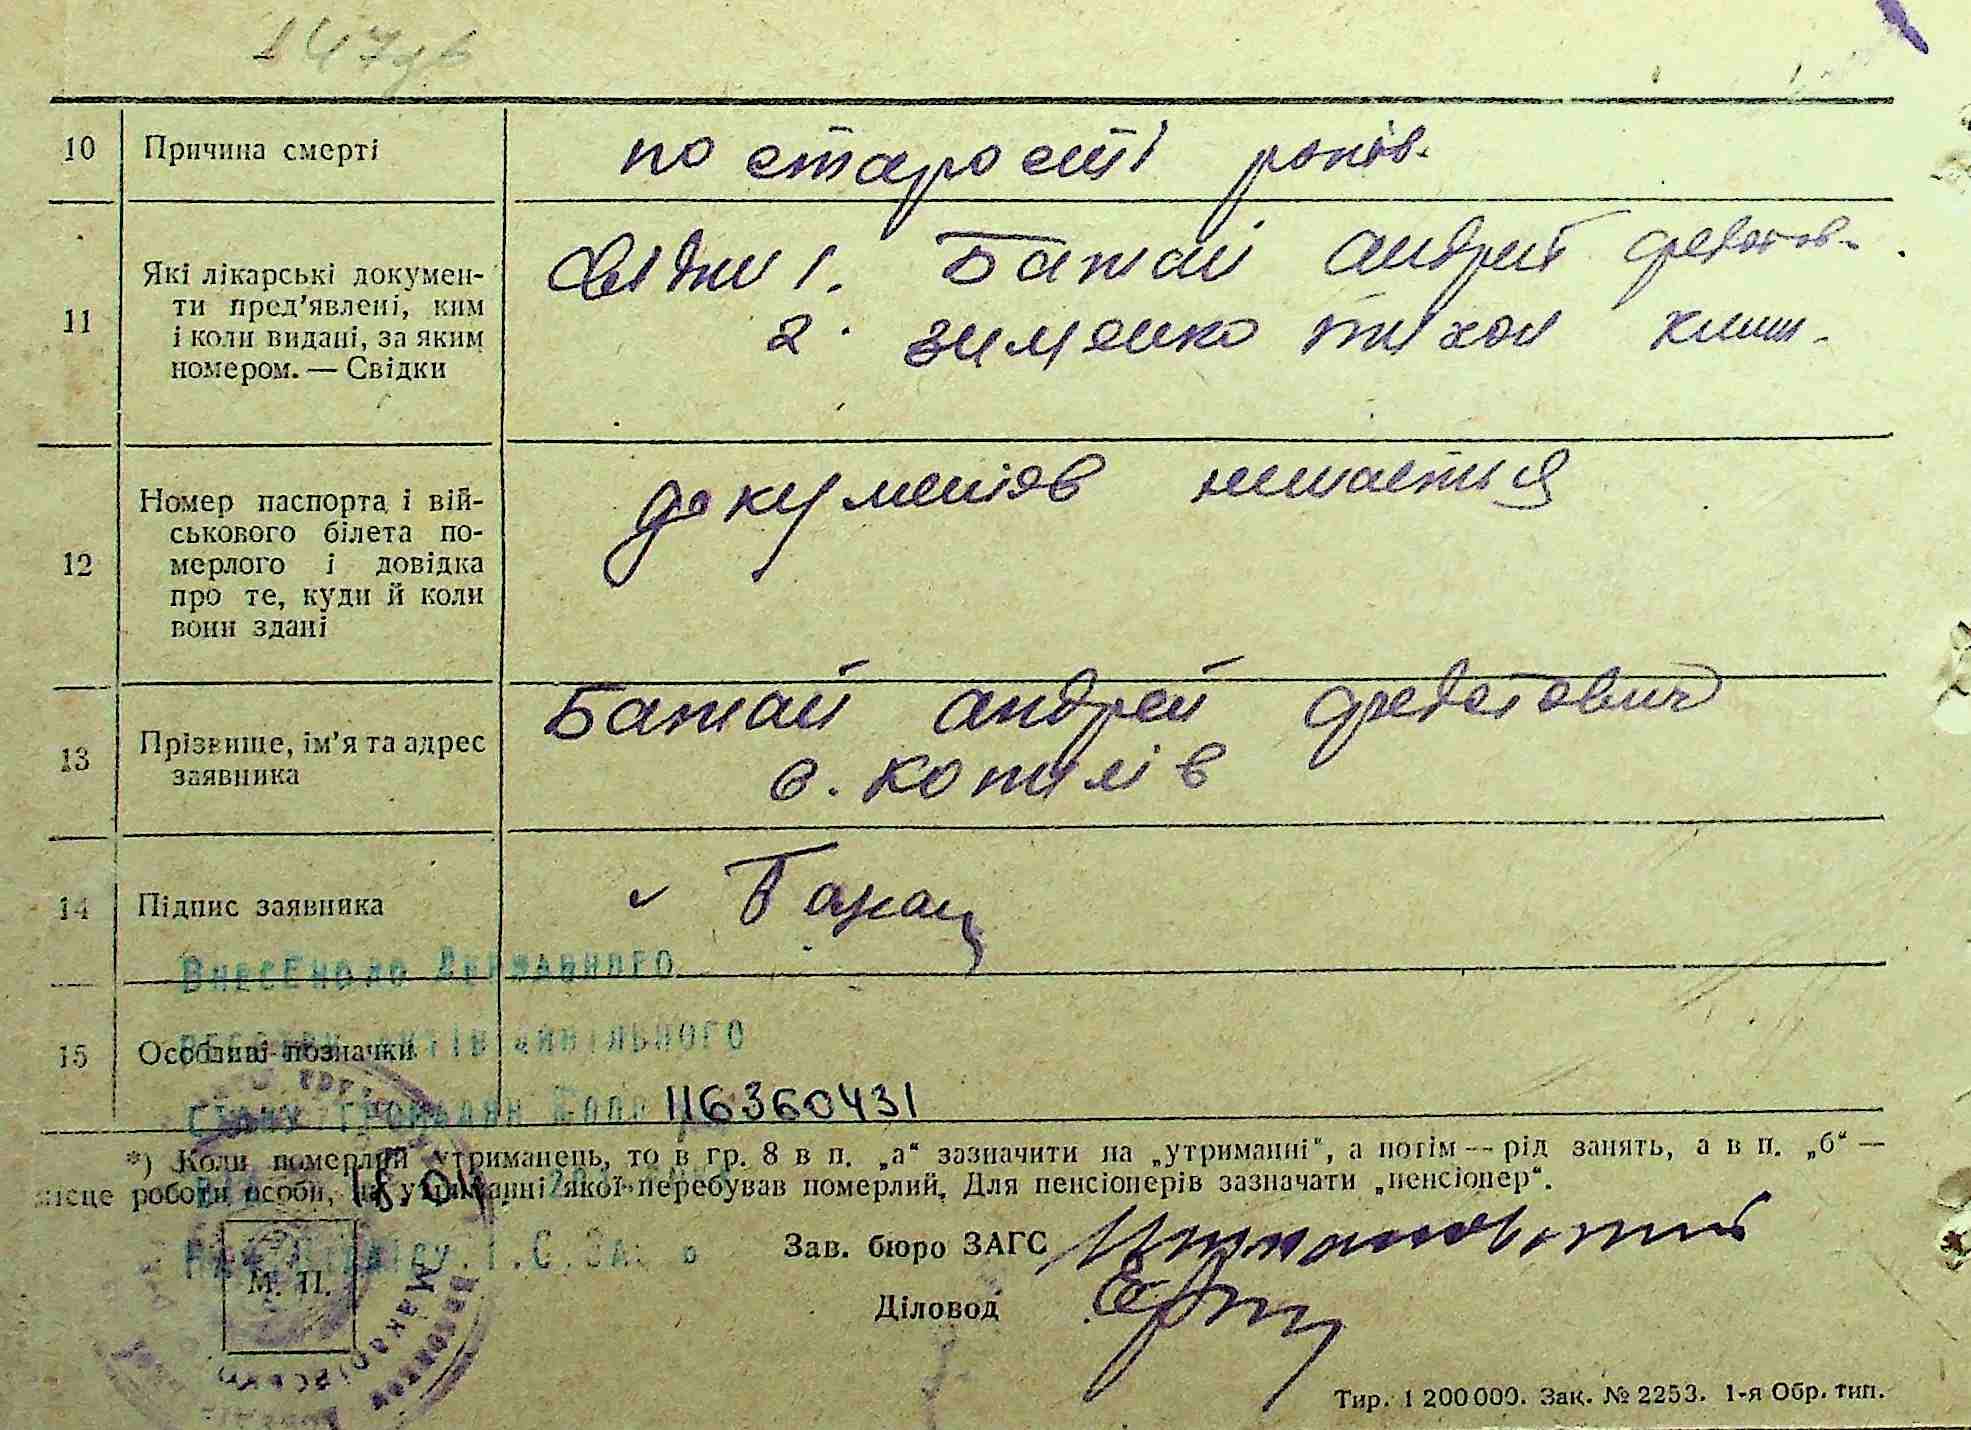 147
10 Причина смерті по старості років.
11 Які лікарські докумен-
ти пред'явлені, ким
і коли видані, за яким
номером. — Свідки
Свідки 1. Бажай Андрей Федотов.
2. Зименко Тихон Клим.
12 Номер паспорта і вій-
ськового білета по-
мерлого і довідка
про те, куди й коли
вони здані
документів немаеться
13 Прізвище, ім'я та адрес
заявника
Бажай Андрей Федотович
с. Копилів
14 Підпис заявника Бажай
Внесено до Державного
реєстру актів цивільного
15 Особливі позначки
стану громадян 116360431
*) Коли померлий утриманець, то в гр. 8 в п. „а“ зазначити на „утриманні“, а потім — рід занять, а в п. „б“ —
місце роботи особи, на утриманні якої перебував померлий. Для пенсіонерів зазначати „пенсіонер“.
18.04
Зав. бюро ЗАГС
М. П.
Діловод
Тир. 1 200 000. Зак. № 2253. 1-я Обр. тип.